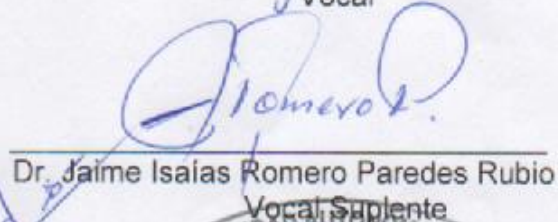 Vocal
Romero R.
Dr. Jaime Isaías Romero Paredes Rubio
Vocal Suplente